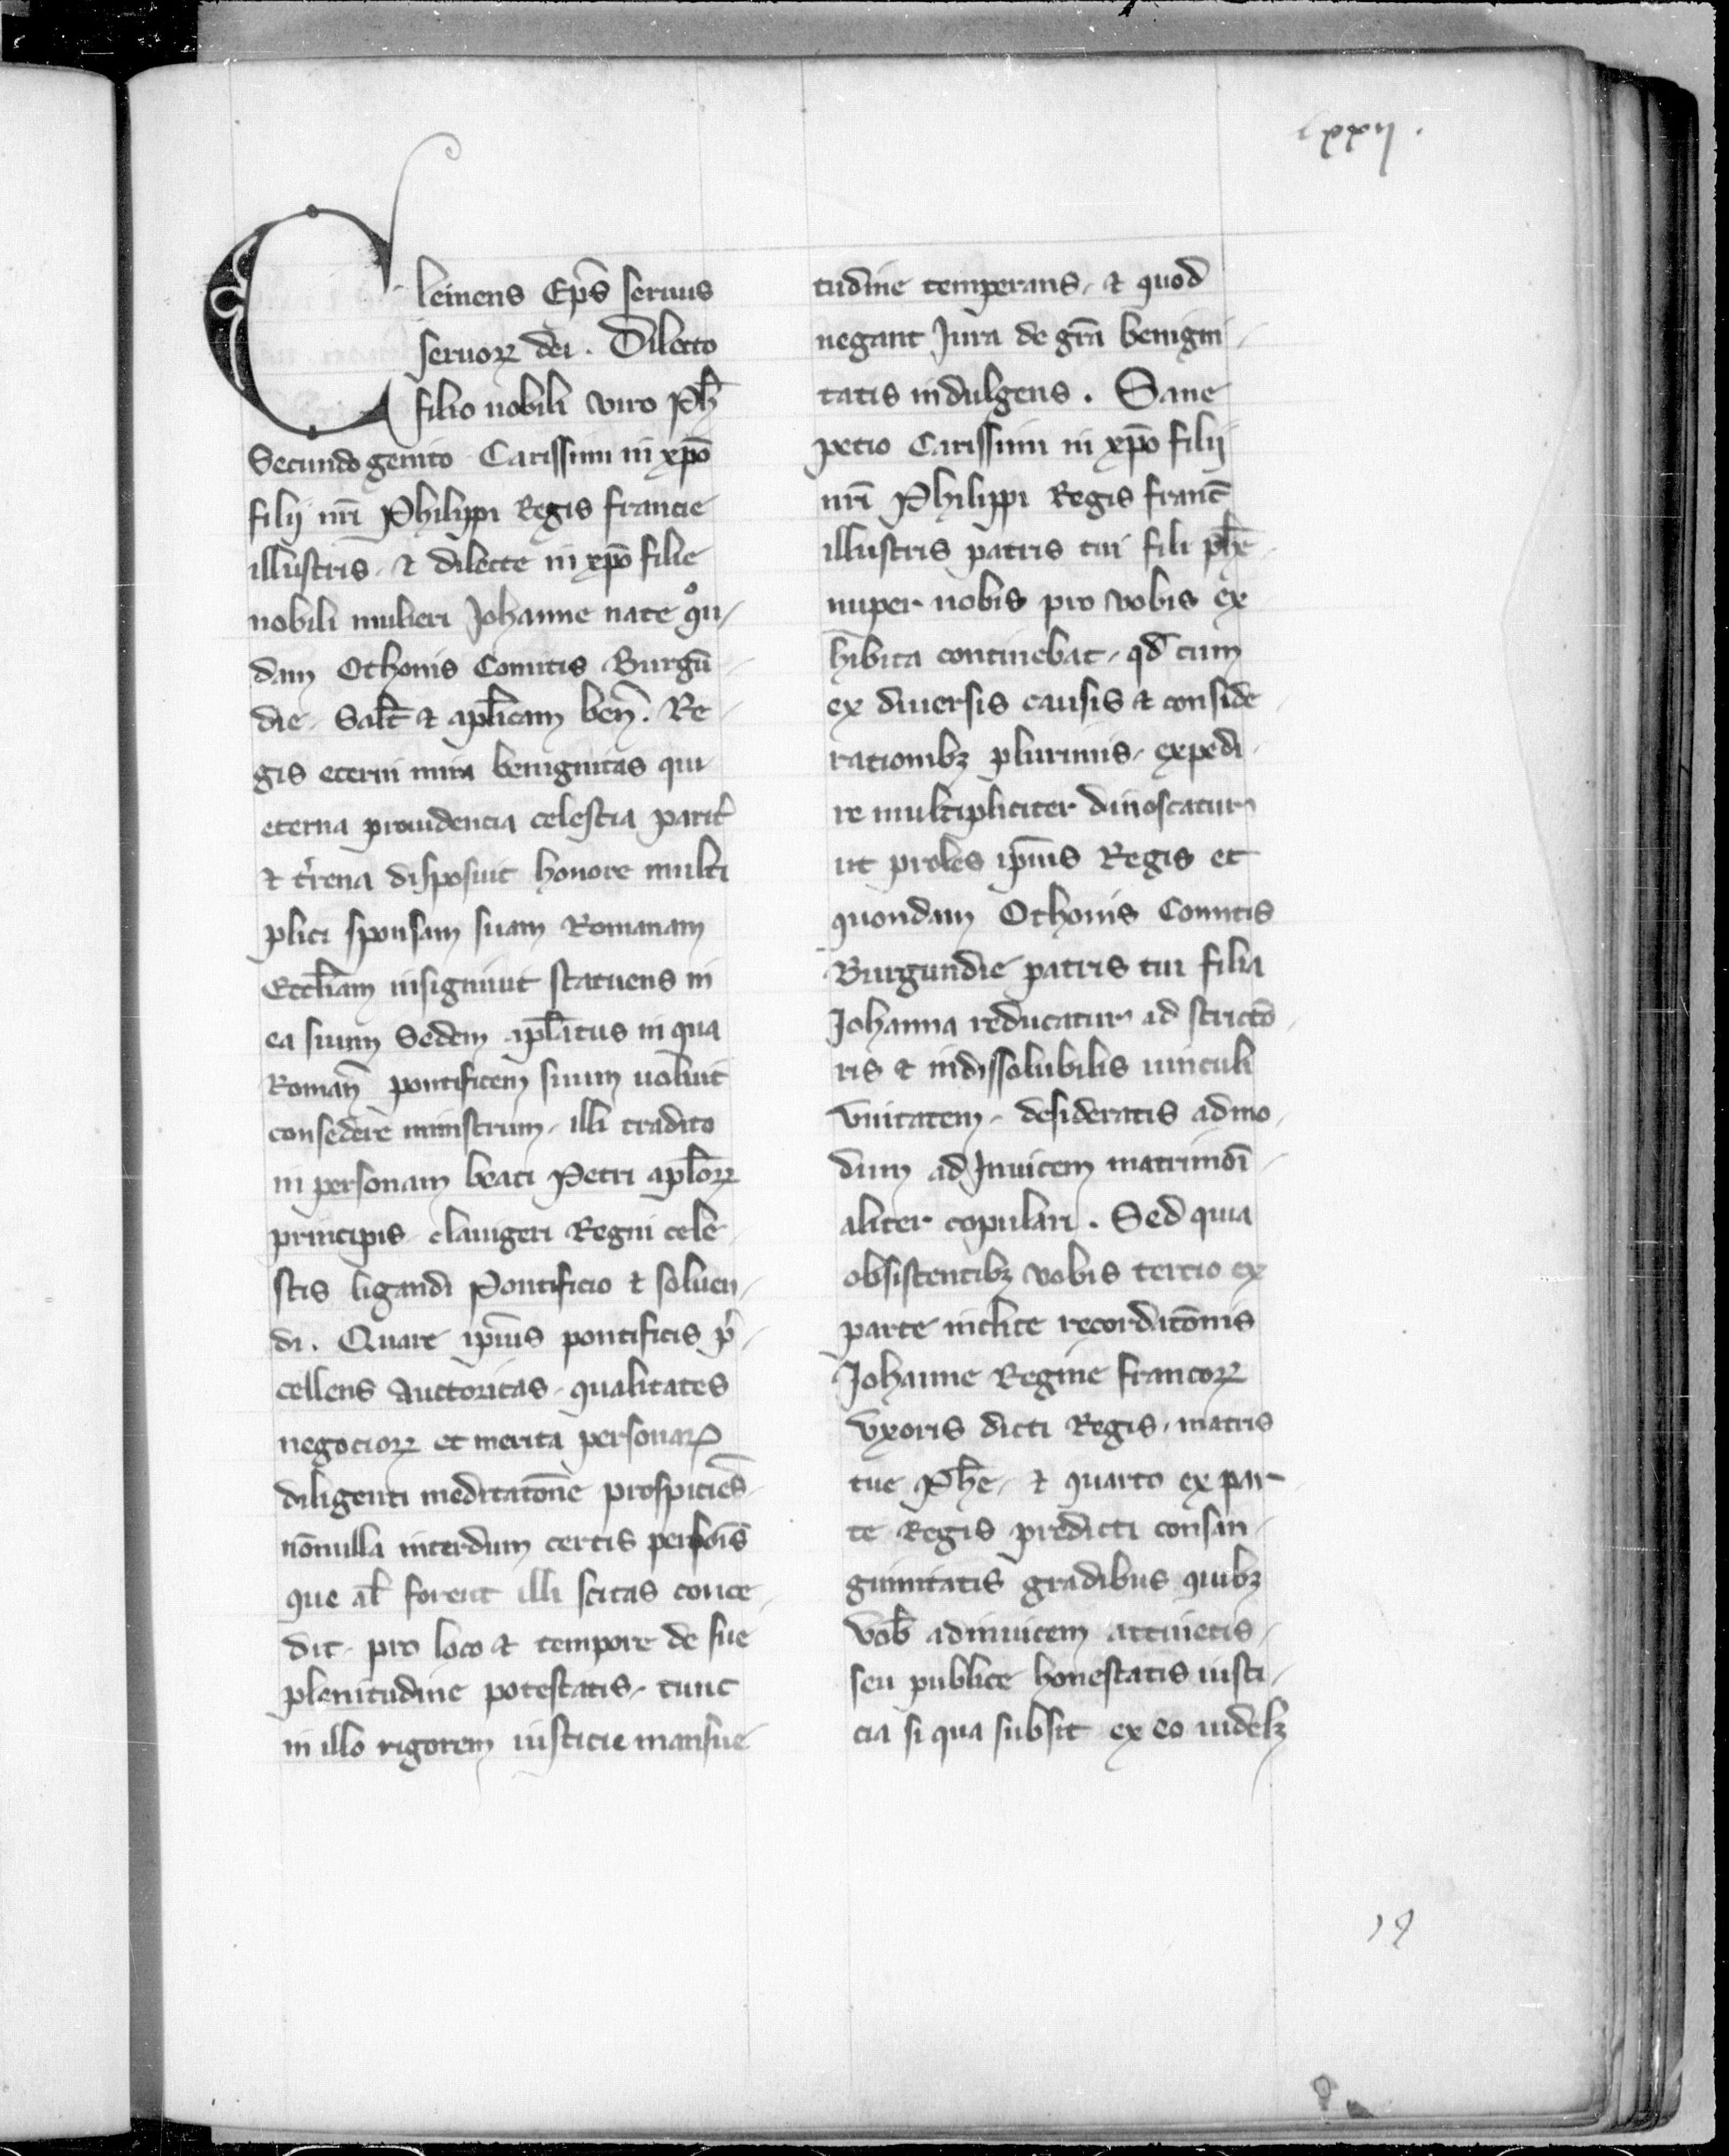 lxxij.
Clemens Ep̄s seruus
seruoꝝ dei. Dilecto
filio nobili viro Ph̄
Secundo genito Carissimi in xp̄o
filij nr̄i Philippi Regis francie
illustris, & dilecte in xp̄o filie
nobili mulieri Johanne nate qͦn
dam Othonis Comitis Burgū
die, Salt̄ & apl̄icam ben̄. Re
gis eterni mira benignitas qui
eterna prouidencia celestia parit̉
& t̉rena disposuit honore multi
plici sponsam suam Romanam
Eccl̄iam insigniuit statuens in
ea suum Sedem apl̄atus in qua
Roman̄ pontificem suum uoluit
consedere ministrum, illi tradito
in personam beati Petri apl̄oꝝ
principis clauigeri Regni cele
stis ligandi Pontificio & soluen
di. Quare ip̄ius pontificis p̉
cellens Auctoritas, qualitates
negocioꝝ et merita personaꝝ
diligenti meditatōne prospiciēs
nōnulla interdum certis persōis
que al̄ forent illi scitas conce
dit, pro loco & tempore de sue
plenitudine potestatis, tunc
in illo rigorem iusticie mansue
tudine temperans, & quod
negant Jura de gr̄a benigni
tatis indulgens. Sane
petio Carissimi in xp̄o filij
nr̄i Philippi Regis franc̄
illustris patris tui fili ph̄e
nuper nobis pro vobis ex
hibita continebat, qd̄ cum
ex diuersis causis & conside
rationibꝫ plurimis, expedi
re multipliciter dinoscatur
ut proles ip̄ius Regis et
quondam Othonis Comitis
Burgundie patris tui filia
Johanna reducatur ad strictō
ris & indissolubilis uinculi
vnitatem, desideratis admo
dum ad Jnuicem matrimōi
aliter copulari. Sed quia
obsistentibꝫ vobis tercio ex
parte inclite recorditōnis
Johanne Regine francoꝝ
vxoris dicti Regis, matris
tue Ph̄e, & quarto ex par
te Regis predicti consan
guinitatis gradibus quibꝫ
vob̄ adinuicem attinetis,
seu publice honestatis iusti
cia si qua subsit ex eo uidelꝫ